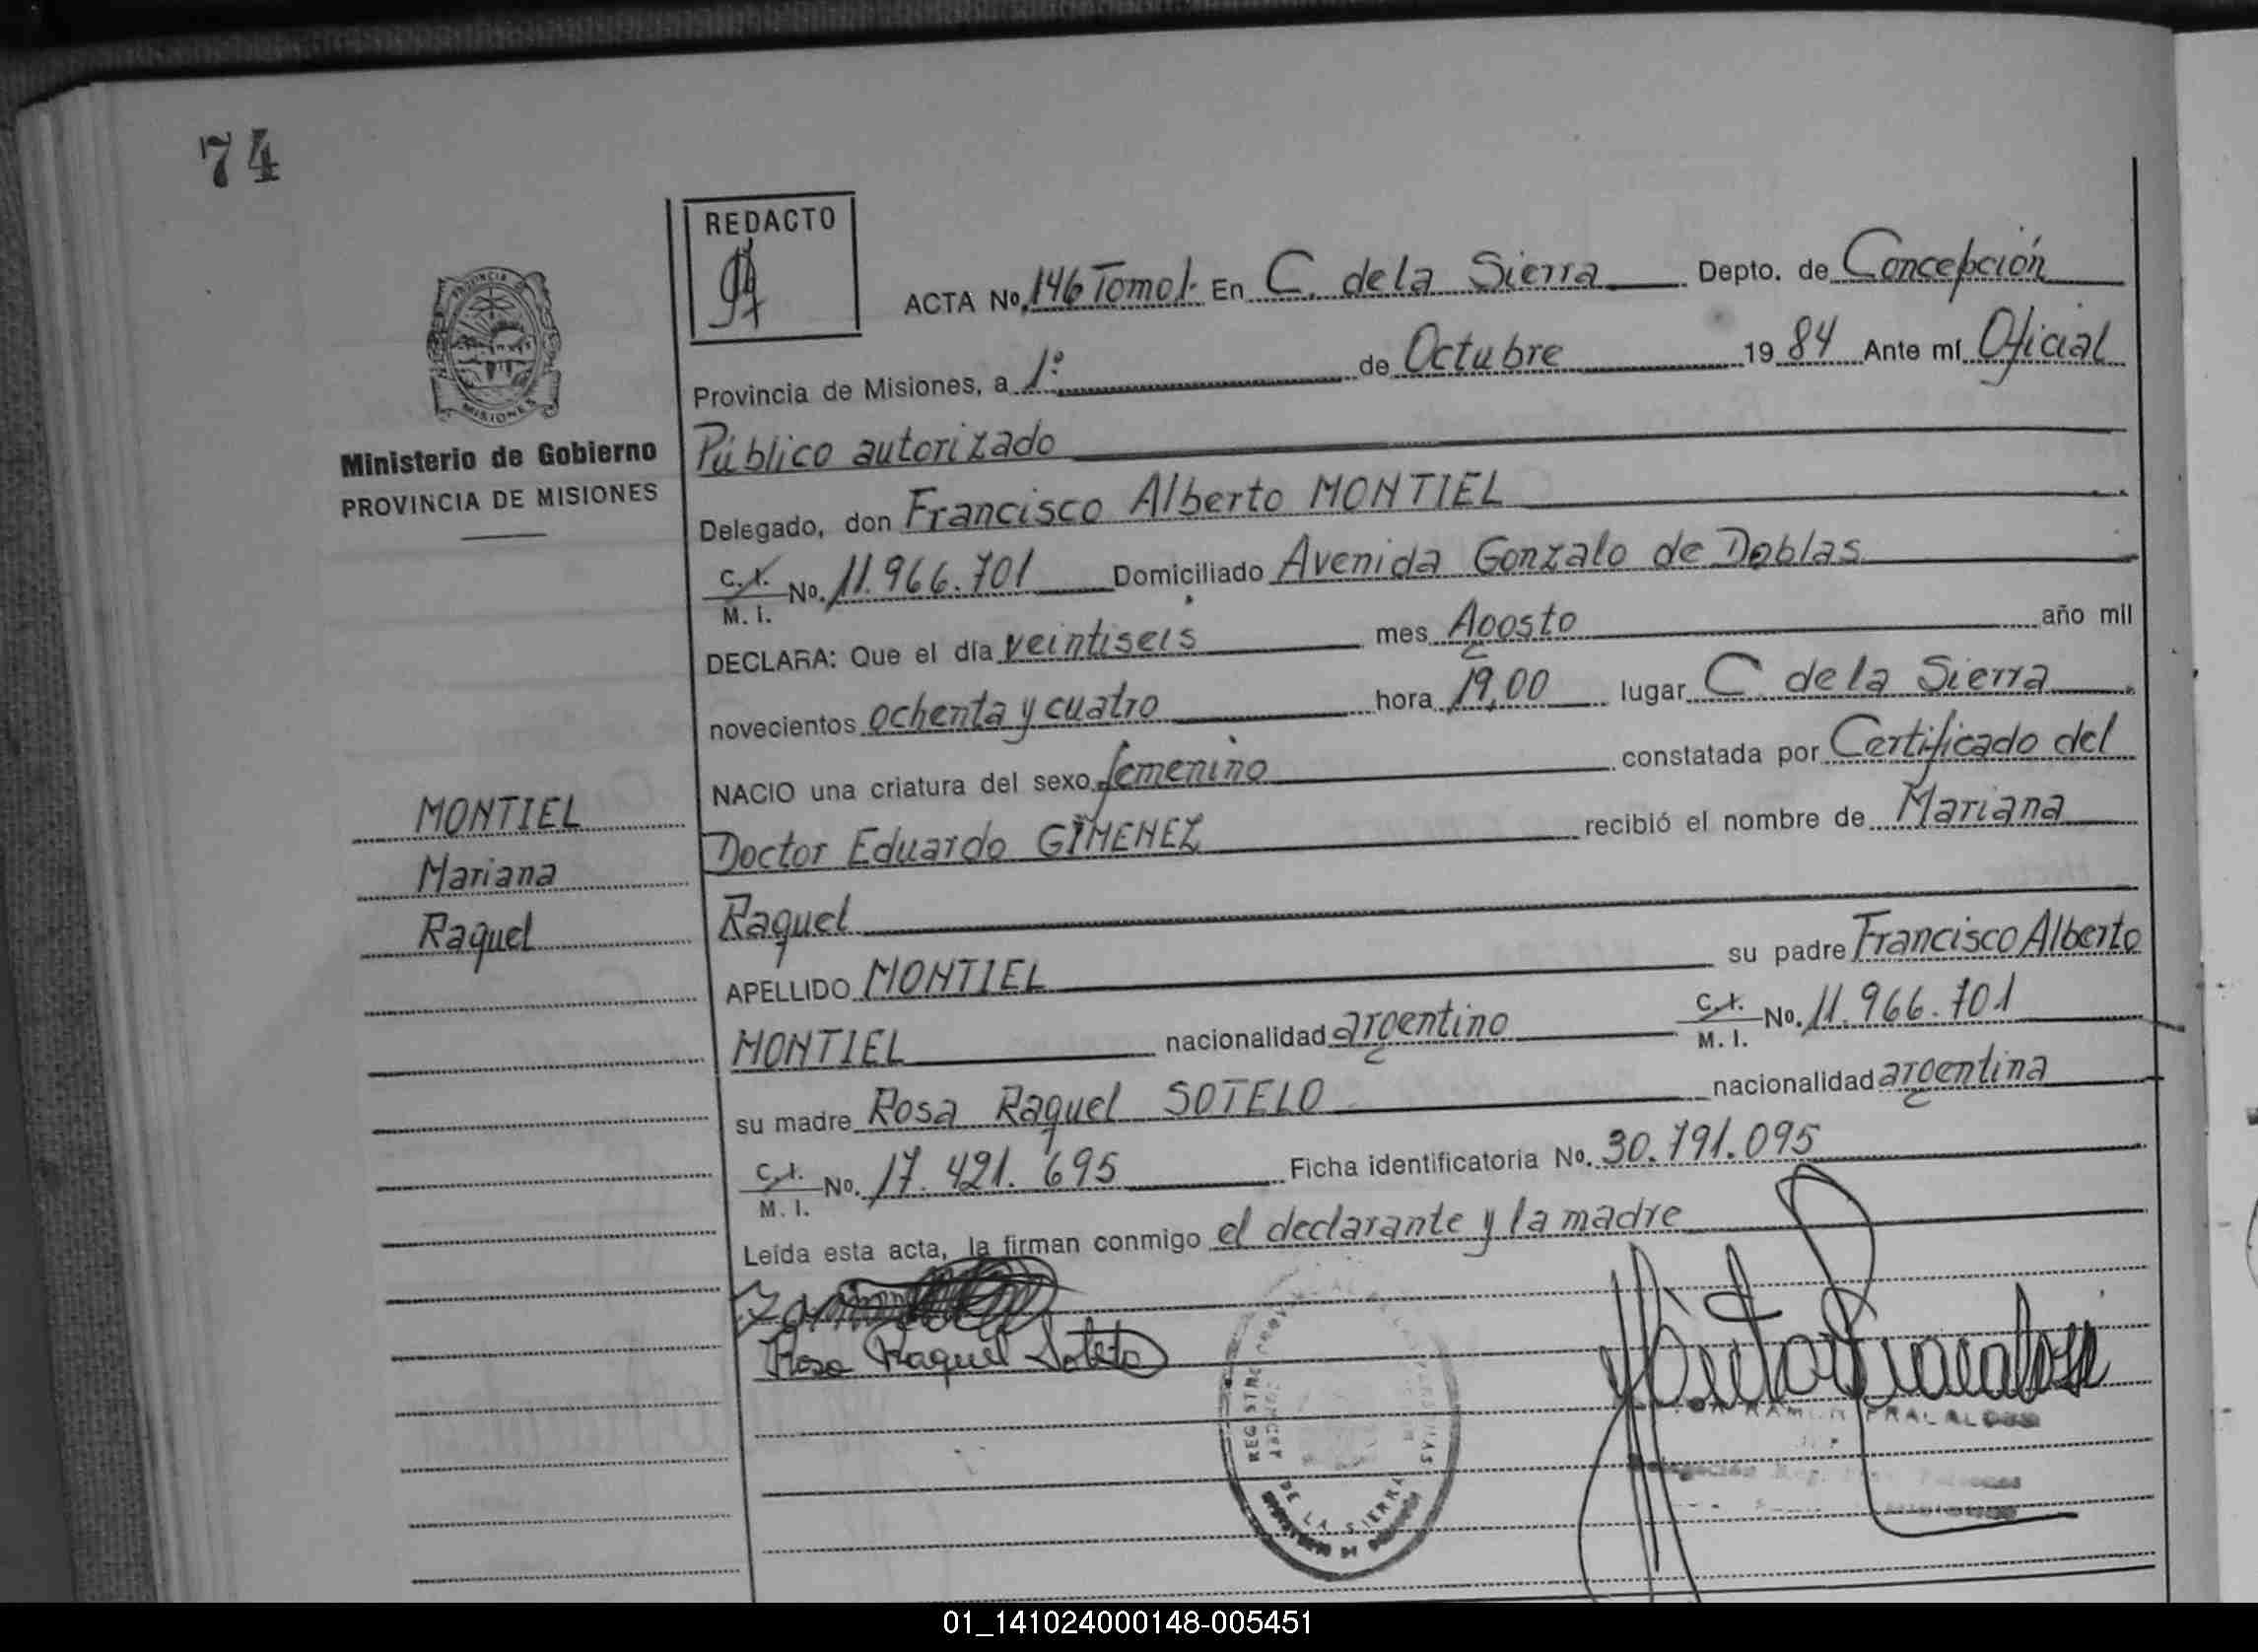 74
REDACTO
ACTA No. 146 Tomo I. En C. de la Sierra Depto. de Concepción
Provincia de Misiones, a 1º de Octubre 1984 Ante mí Oficial
Público autorizado
Delegado, don Francisco Alberto MONTIEL
C. I. M. I. No. 11.966.701 Domiciliado Avenida Gonzalo de Doblas
DECLARA: Que el día veintiseis mes Agosto año mil
novecientos ochenta y cuatro hora 19,00 lugar C. de la Sierra
NACIO una criatura del sexo femenino constatada por Certificado del
Doctor Eduardo GIMENEZ recibió el nombre de Mariana
Raquel
APELLIDO MONTIEL su padre Francisco Alberto
MONTIEL nacionalidad argentino C. I. M. I. No. 11.966.701
su madre Rosa Raquel SOTELO nacionalidad argentina
C. I. M. I. No. 17.421.695 Ficha identificatoria No. 30.791.095
Leída esta acta, la firman conmigo el declarante y la madre
Rosa Raquel Sotelo
PROVINCIA DE
MISIONES
Ministerio de Gobierno
PROVINCIA DE MISIONES
MONTIEL
Mariana
Raquel
REGISTRO
DE LA SIERRA
RAMON
01_141024000148-005451